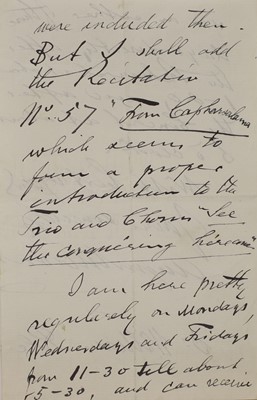 were included then.
But I shall add
the Recitativ
No. 57 "From Capharselama
which seems to
form a proper
introduction to the
Trio and Chorus "See
the conquering hero come"
I am here pretty
regularly on Mondays,
Wednesdays and Fridays
from 11-30 till about
5-30, and can receive